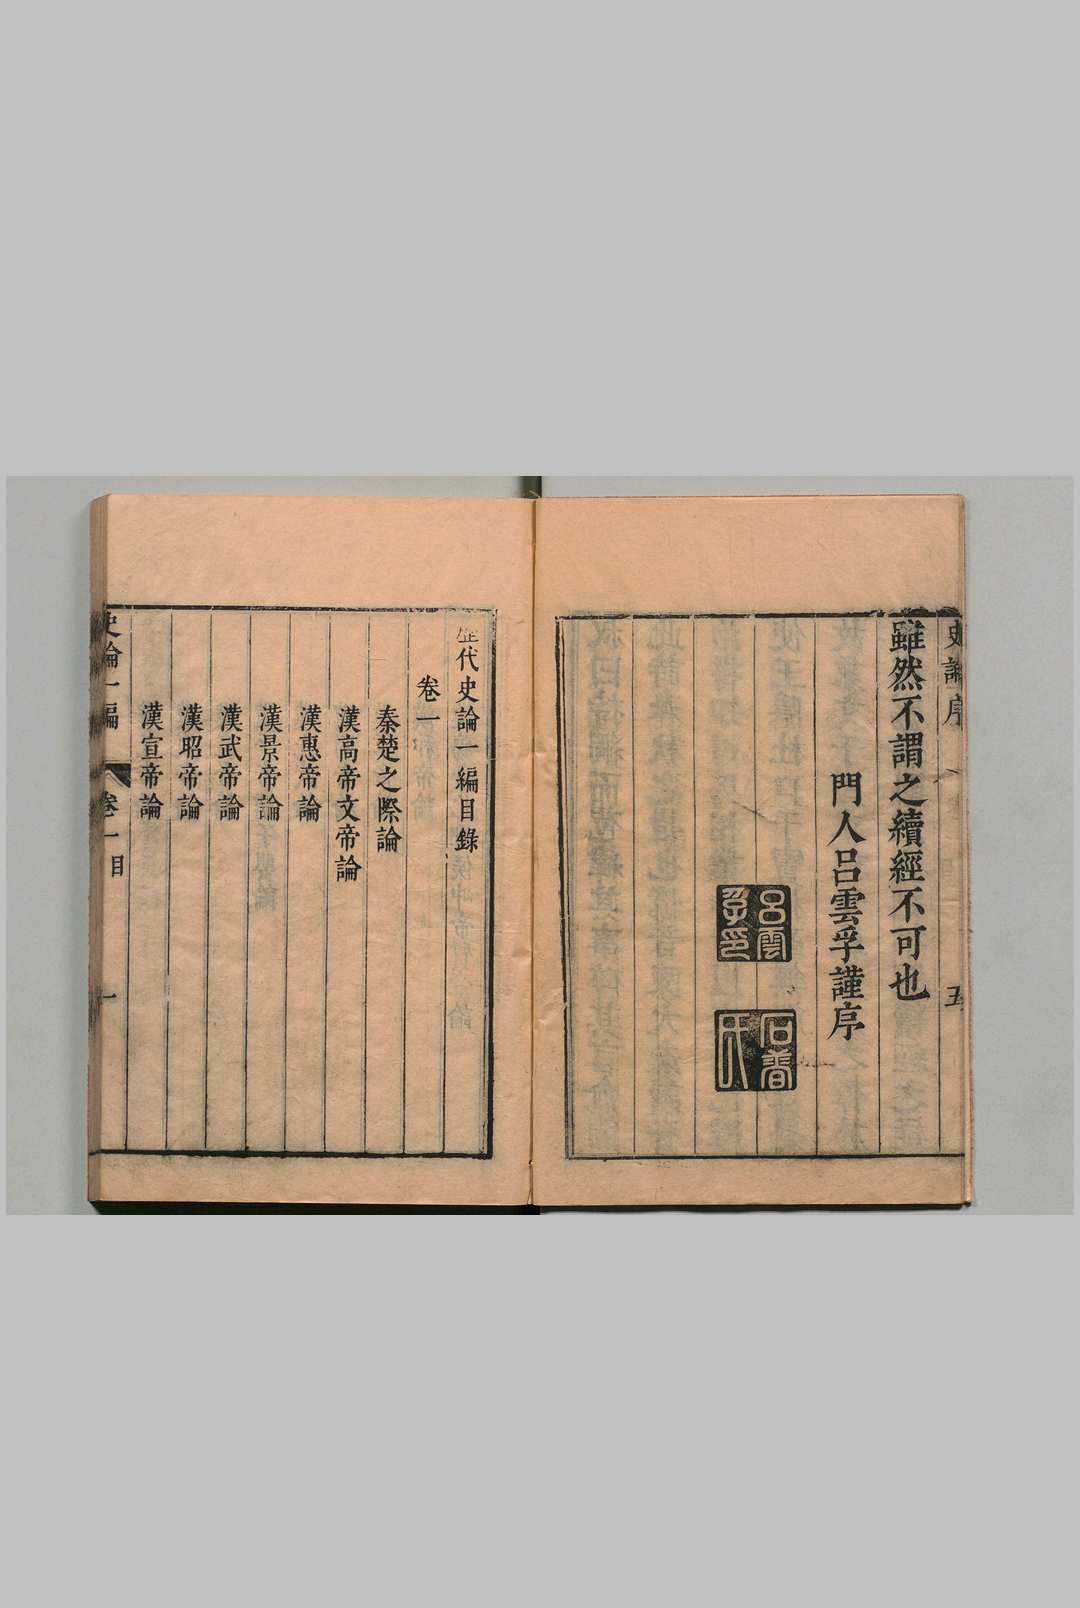 史論序
五
雖然不謂之續經不可也
門人呂雲孚謹序
呂雲孚印
石香氏
歷代史論一編目錄
卷一
秦楚之際論
漢高帝文帝論
漢惠帝論
漢景帝論
漢武帝論
漢昭帝論
漢宣帝論
史論一編
卷一目
一